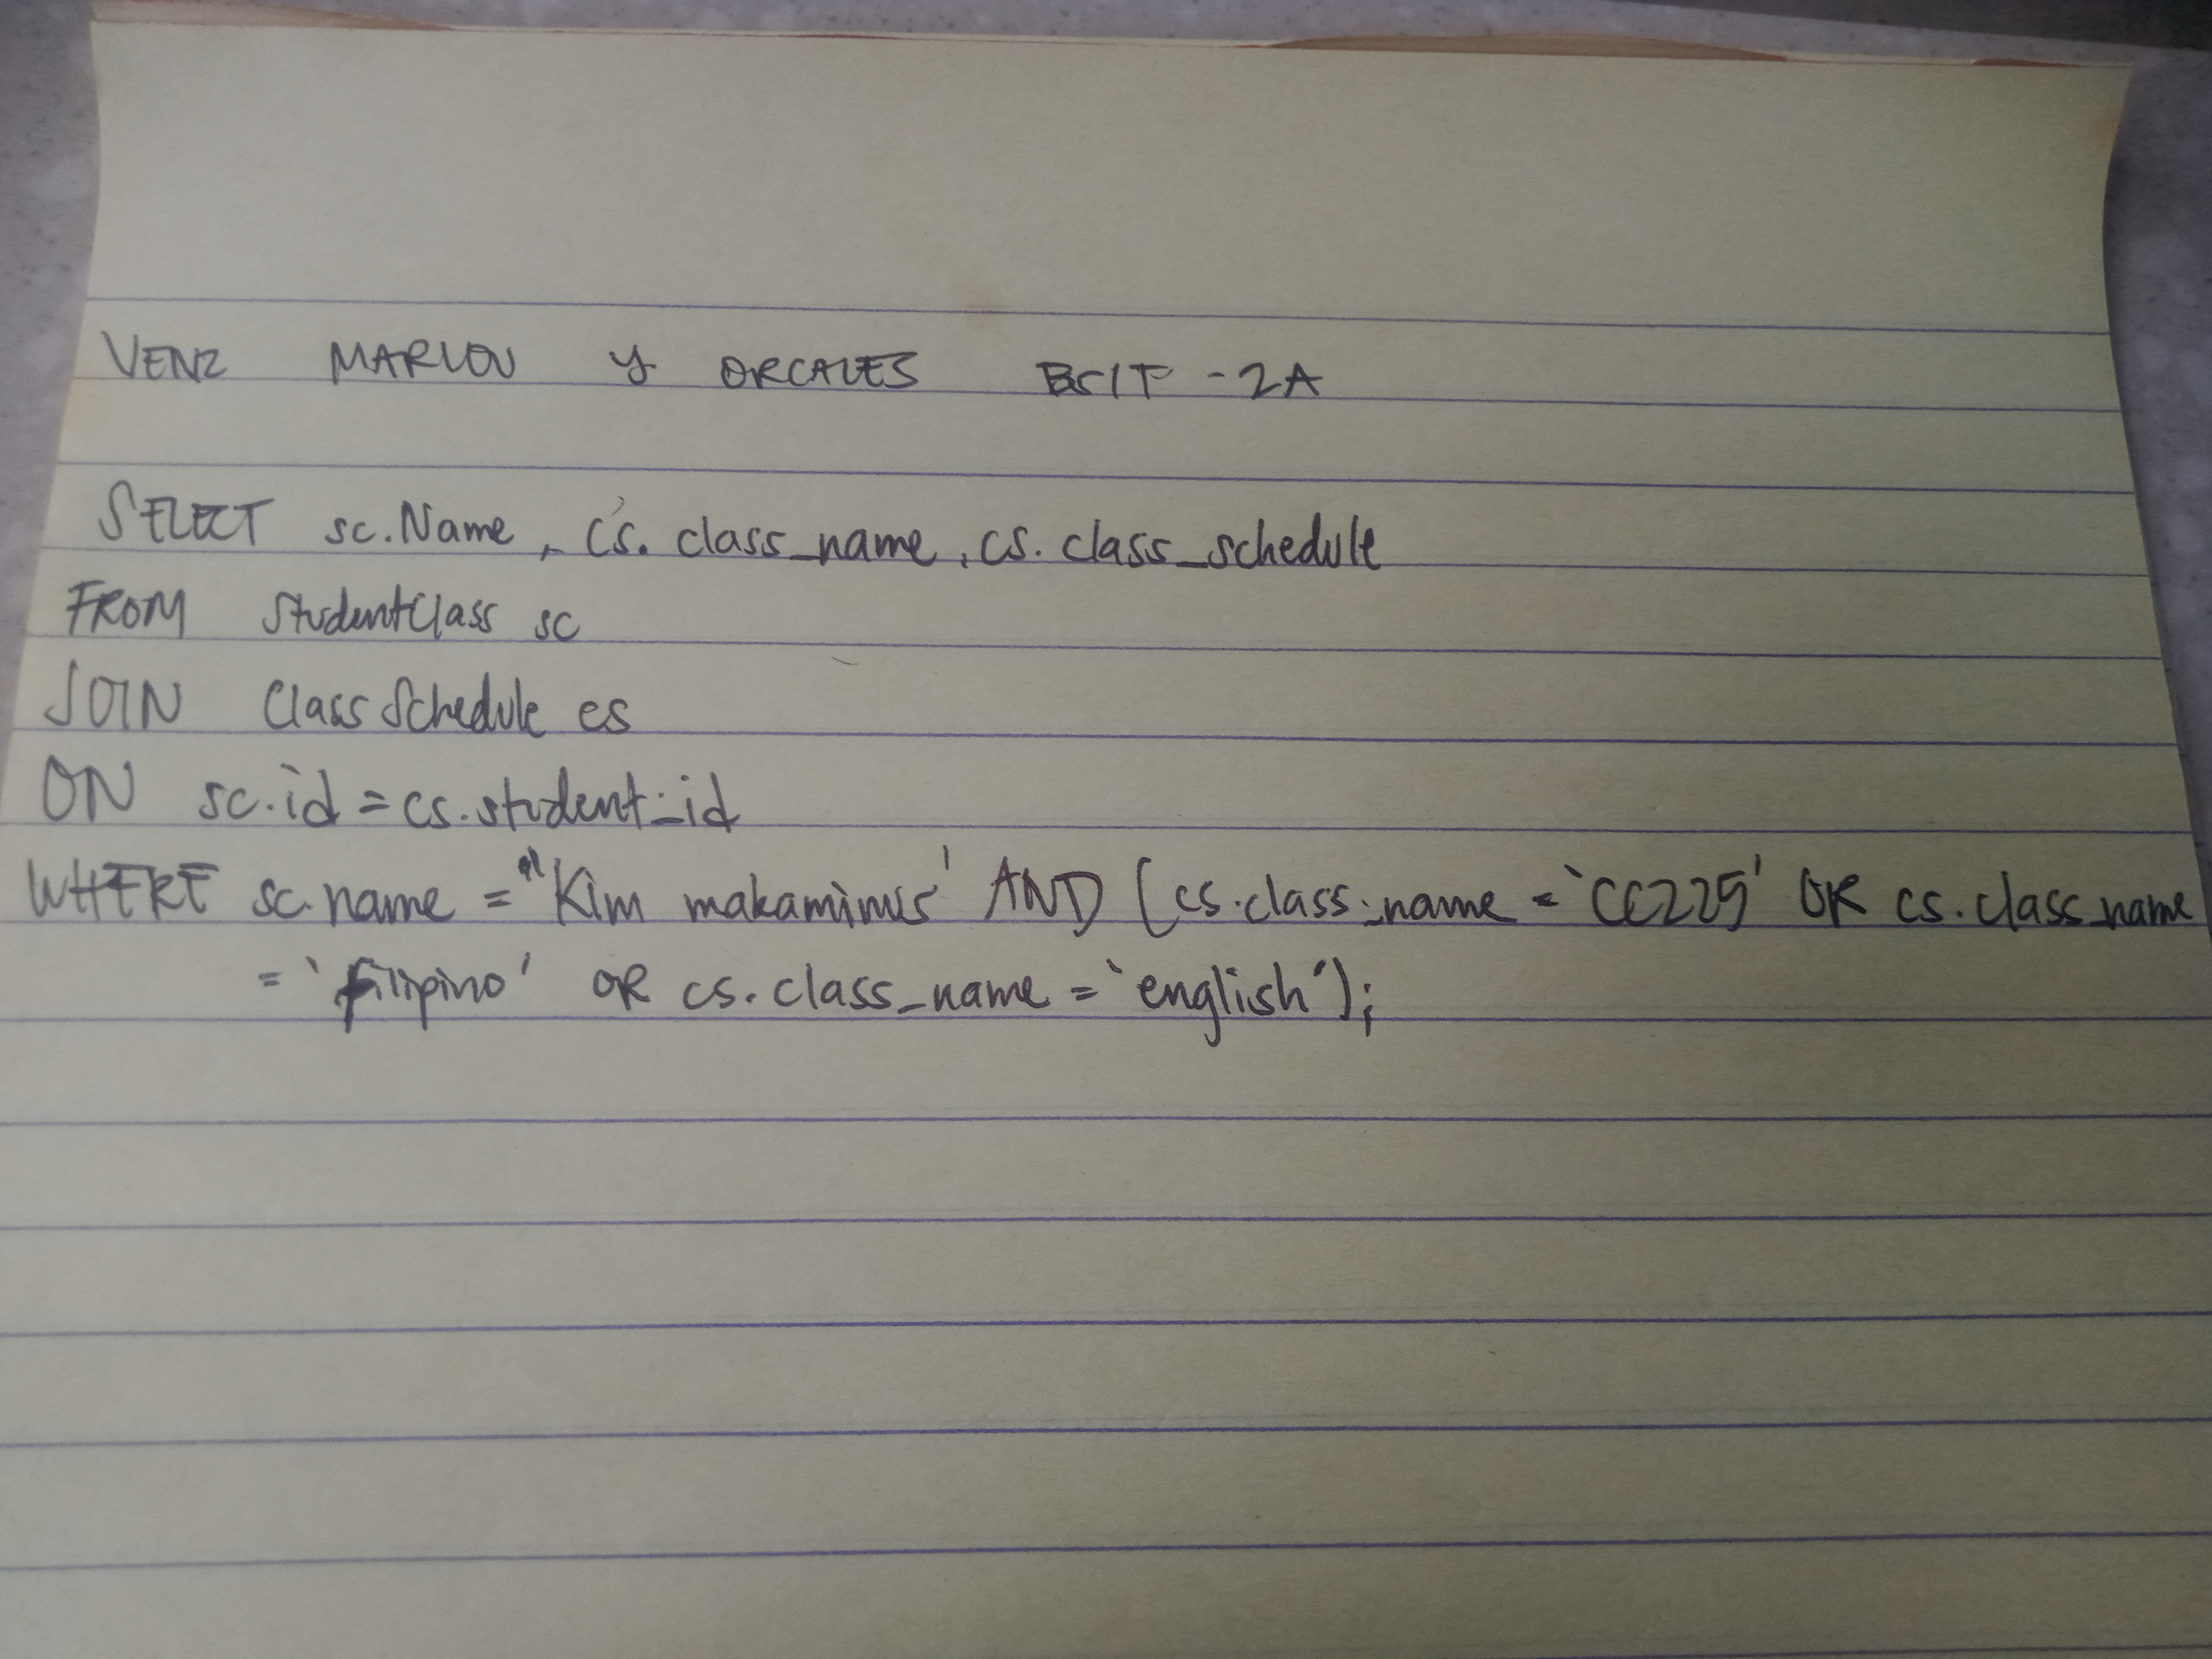 VENZ MARLOU Y ORCALES BSIT - 2A
SELECT sc.Name, cs.class_name, cs.class_schedule
FROM StudentClass sc
JOIN ClassSchedule cs
ON sc.id = cs.student_id
WHERE sc.name = "Kim makaminus' AND (cs.class_name = 'CC225' OR cs.class_name
= 'filipino' OR cs.class_name = 'english');